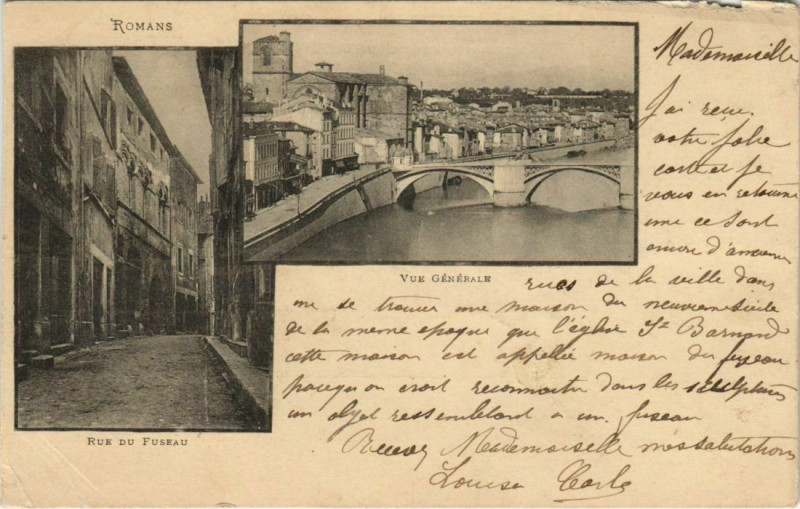 ROMANS
VUE GÉNÉRALE
RUE DU FUSEAU
Mademoiselle
J'ai reçu
votre jolie
carte et je
vous en retourne
une ce sont
encore d'anciennes
rues de la ville dans
une se trouve une maison du neuvieme siècle
de la meme epoque que l'église St Barnard
cette maison est appellée maison du fuseau
parcequ on croit reconnaitre dans les sculptures
un objet ressemblant a un fuseau
Recevez Mademoiselle mes salutations
Louise